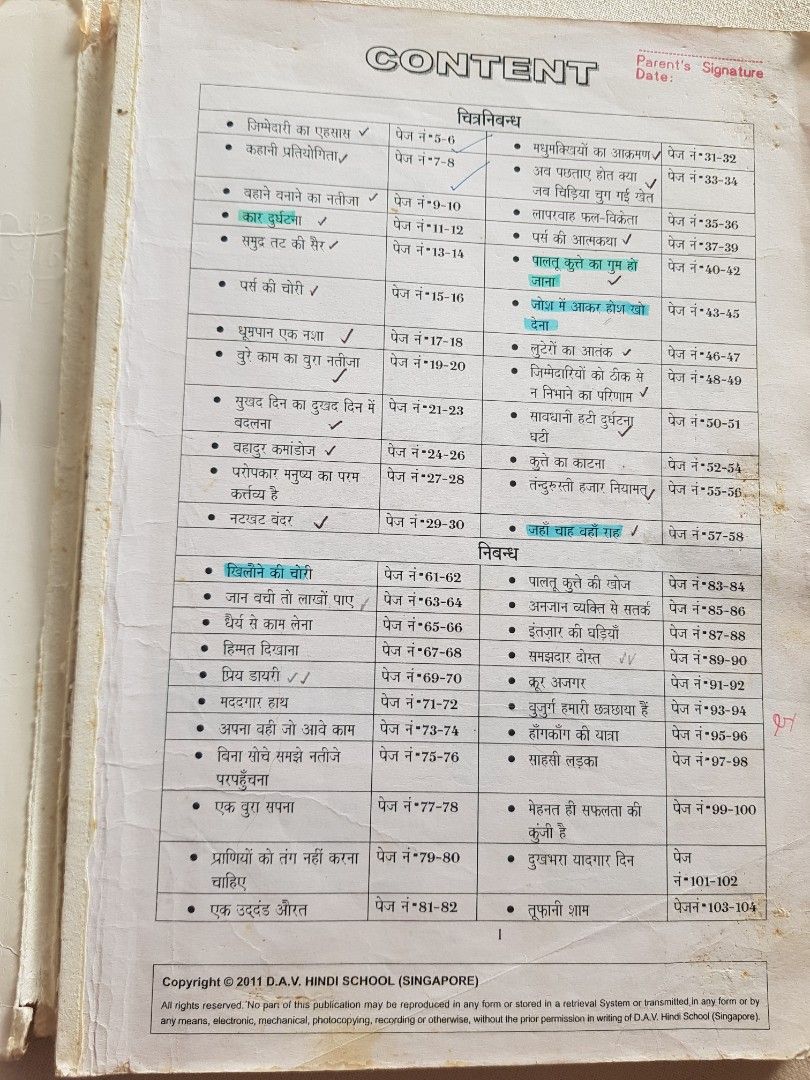 CONTENT
Parent's Signature
Date:
चित्रनिबन्ध
• जिम्मेदारी का एहसास ✓ पेज नं•5-6
• कहानी प्रतियोगिता ✓ पेज नं•7-8
• बहाने बनाने का नतीजा ✓ पेज नं•9-10
• कार दुर्घटना ✓ पेज नं•11-12
• समुद्र तट की सैर ✓ पेज नं•13-14
• पर्स की चोरी ✓ पेज नं•15-16
• धूम्रपान एक नशा ✓ पेज नं•17-18
• बुरे काम का बुरा नतीजा ✓ पेज नं•19-20
• सुखद दिन का दुखद दिन में पेज नं•21-23
बदलना ✓
• बहादुर कमांडोज ✓ पेज नं•24-26
• परोपकार मनुष्य का परम पेज नं•27-28
कर्त्तव्य है
• नटखट बंदर ✓ पेज नं•29-30
• मधुमक्खियों का आक्रमण ✓ पेज नं•31-32
• अब पछताए होत क्या पेज नं•33-34
जब चिड़िया चुग गई खेत ✓
• लापरवाह फल-विक्रेता पेज नं•35-36
• पर्स की आत्मकथा ✓ पेज नं•37-39
• पालतू कुत्ते का गुम हो पेज नं•40-42
जाना ✓
• जोश में आकर होश खो पेज नं•43-45
देना
• लुटेरों का आतंक ✓ पेज नं•46-47
• जिम्मेदारियों को ठीक से पेज नं•48-49
न निभाने का परिणाम ✓
• सावधानी हटी दुर्घटना पेज नं•50-51
घटी ✓
• कुत्ते का काटना पेज नं•52-54
• तंन्दुरुस्ती हजार नियामत ✓ पेज नं•55-56
• जहाँ चाह वहाँ राह ✓ पेज नं•57-58
निबन्ध
• खिलौने की चोरी पेज नं•61-62
• जान बची तो लाखों पाए ✓ पेज नं•63-64
• धैर्य से काम लेना पेज नं•65-66
• हिम्मत दिखाना पेज नं•67-68
• प्रिय डायरी ✓✓ पेज नं•69-70
• मददगार हाथ पेज नं•71-72
• अपना वही जो आवे काम पेज नं•73-74
• बिना सोचे समझे नतीजे पेज नं•75-76
परपहुँचना
• एक बुरा सपना पेज नं•77-78
• प्राणियों को तंग नहीं करना पेज नं•79-80
चाहिए
• एक उद्दंड औरत पेज नं•81-82
• पालतू कुत्ते की खोज पेज नं•83-84
• अनजान व्यक्ति से सतर्क पेज नं•85-86
• इंतज़ार की घड़ियाँ पेज नं•87-88
• समझदार दोस्त ✓✓ पेज नं•89-90
• क्रूर अजगर पेज नं•91-92
• बुजुर्ग हमारी छत्रछाया हैं पेज नं•93-94
• हाँगकाँग की यात्रा पेज नं•95-96
• साहसी लड़का पेज नं•97-98
• मेहनत ही सफलता की पेज नं•99-100
कुंजी है
• दुखभरा यादगार दिन पेज
नं•101-102
• तूफानी शाम पेजनं•103-104
1
Copyright © 2011 D.A.V. HINDI SCHOOL (SINGAPORE)
All rights reserved. No part of this publication may be reproduced in any form or stored in a retrieval System or transmitted,in any form or by
any means, electronic, mechanical, photocopying, recording or otherwise, without the prior permission in writing of D.A.V. Hindi School (Singapore).